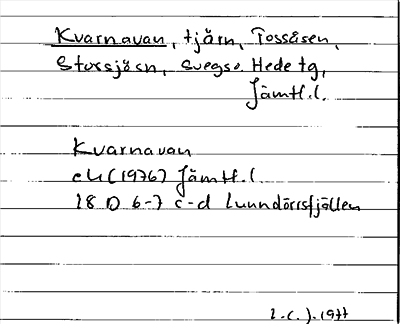 Kvarnavan, tjärn, Tossåsen,
Storsjöen, Svegs o. Hede tg,
Jämtl. l.
Kvarnavan
ek (1976) Jämtl. l.
18 D 6-7 c-d Lunndörrsfjällen
1977